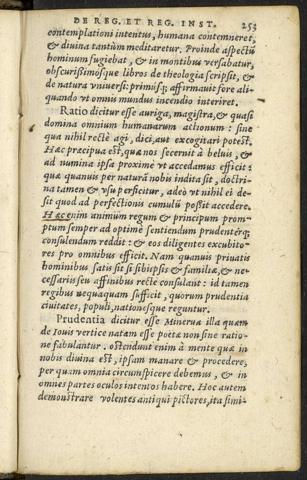 DE REG. ET REG. INST. 253
contemplationi intentus, humana contemneret,
& diuina tantùm meditaretur. Proinde aspectū
hominum fugiebat, & in montibus versabatur,
obscurißimosq́ue libros de theologia scripsit, &
de natura vniuersi: primusq́; affirmauit fore ali-
quando vt omnis mundus incendio interiret.
Ratio dicitur esse auriga, magistra, & quasi
domina omnium humanarum actionum: sine
qua nihil rectè agi, dici, aut excogitari potest.
Hæc præcipua est, quæ nos secernit à beluis, &
ad numina ipsa proximè vt accedamus efficit:
quæ quanuis per naturā nobis indita sit, doctri-
na tamen & vsu perficitur, adeò vt nihil ei de-
sit quod ad perfectionis cumulū poßit accedere.
Hæc enim animum regum & principum prom-
ptum semper ad optimè sentiendum prudenterq́;
consulendum reddit: & eos diligentes excubito-
res pro omnibus efficit. Nam quanuis priuatis
hominibus satis sit si sibiipsis & familiæ, & ne-
cessariis seu affinibus rectè consulant: id tamen
regibus nequaquam sufficit, quorum prudentia
ciuitates, populi, nationesque reguntur.
Prudentia dicitur esse Minerua illa quam
de Iouis vertice natam esse poëtæ non sine ratio-
ne fabulantur. ostendunt enim à mente quæ in
nobis diuina est, ipsam manare & procedere,
per quam omnia circunspicere debemus, & in
omnes partes oculos intentos habere. Hoc autem
demonstrare volentes antiqui pictores, ita simi-